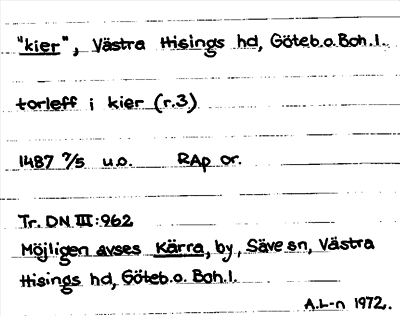 "kier", Västra Hisings hd, Göteb.o.Boh.l.
torleff i kier (r.3)
1487 7/5 u.o. RAp or.
Tr. DN III:962
Möjligen avses Kärra, by, Säve sn, Västra
Hisings hd, Göteb.o. Boh.l.
A.L-n 1972.